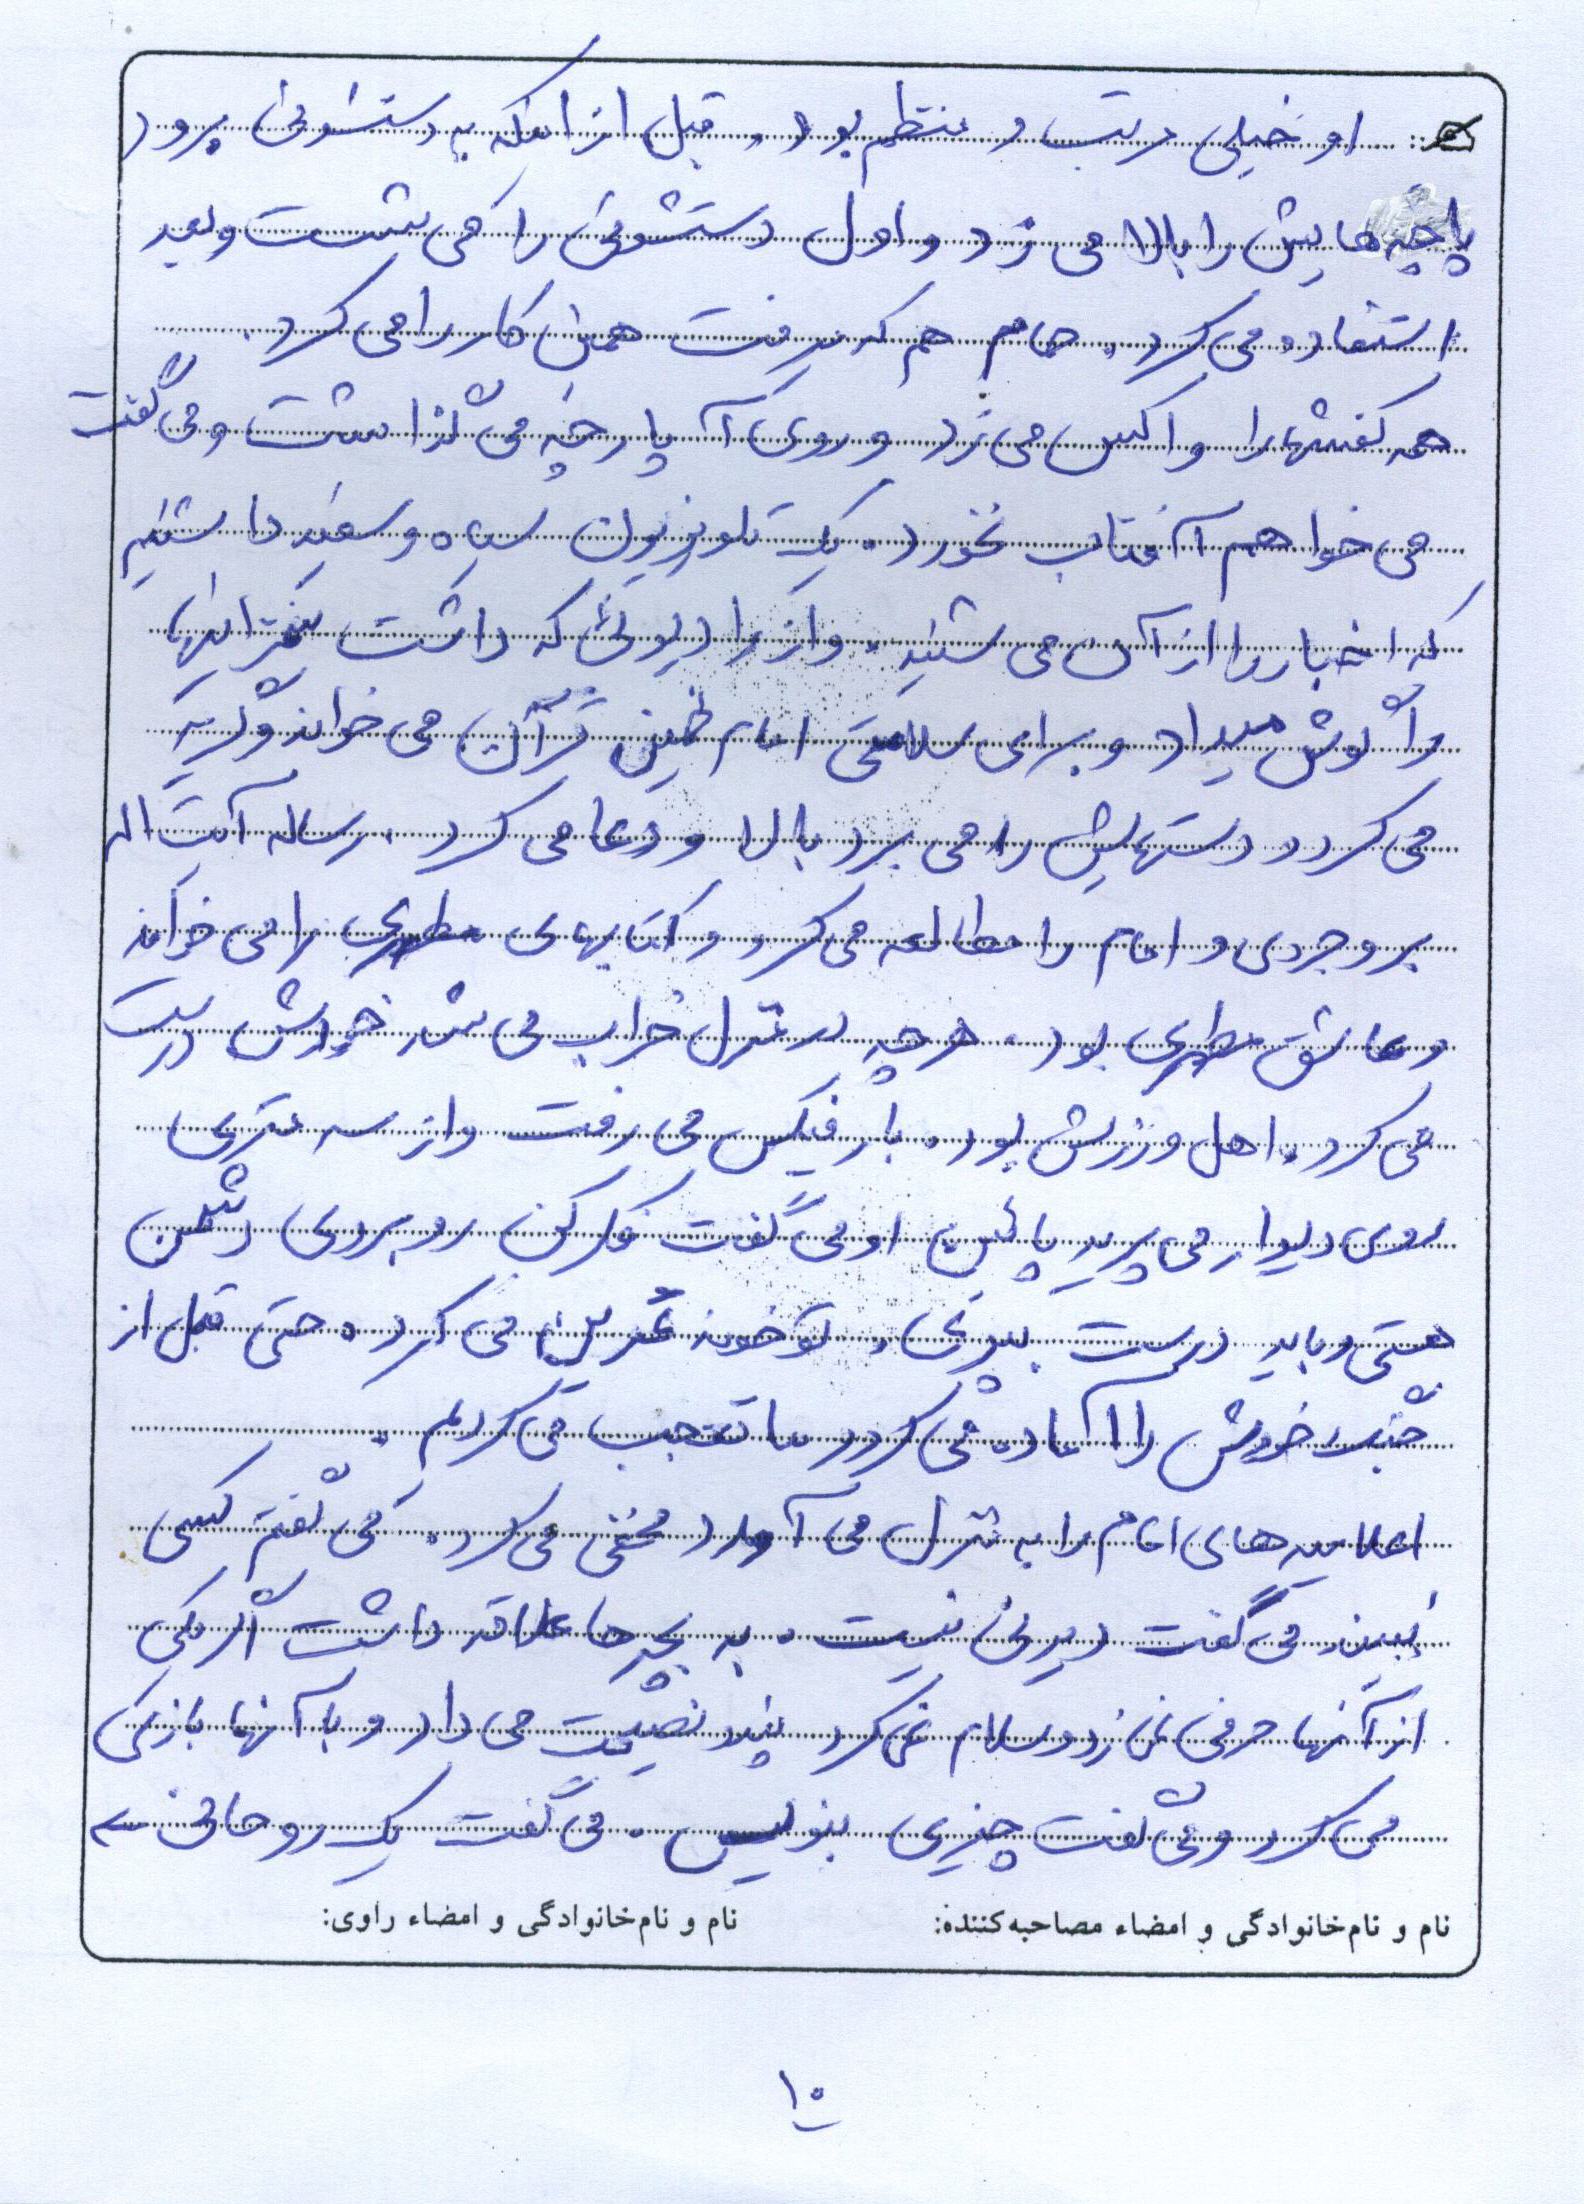 او خیلی مرتب و منتظم بود. قبل از اینکه به دستشوئی برود
پاچه‌هایش را بالا می زد و اول دستشوئی را می شست و بعد
استفاده می کرد. حمام هم که میرفت همین کار را می کرد.
همه کفشها را واکس می زد و روی آ پارچه می گذاشت و می گفت
می خواهم آفتاب نخورد. یک تلویزیون سیاه و سفید داشتیم
که اخبار را از آن می شنید. و از رادیوئی که داشت سخنرانیها
را گوش میداد و برای سلامتی امام خمینی قرآن می خواند و گریه
می کرد و دستهایش را می برد بالا و دعا می کرد. رساله آیت اله
بروجردی و امام را مطالعه می کرد و کتابهای مطهری را می خواند
و عاشق مطهری بود. هر چه در منزل خراب می شد خودش درست
می کرد. اهل ورزش بود. بارفیکس می رفت و از سه متری
روی دیوار می پرید پائین او می گفت فکر کن روبروی دشمن
هستی و باید درست بپری. تو خونه تمرین می کرد. حتی قبل از
جنگ خودش را آماده می کرد و ما تعجب می کردیم.
اعلامیه های امام را به منزل می آورد مخفی می کرد. می گفتم کسی
نبیند می گفت دیدنی نیست. به بچه ها علاقه داشت اگر یکی
از آنها حرفی نمی زد و سلام نمی کرد پند نصیحت می داد و با آنها بازی
می کرد و می گفت چیزی بنویس. می گفت یک روحانی
نام و نام‌خانوادگی و امضاء مصاحبه‌کننده: نام و نام‌خانوادگی و امضاء راوی:
۱۰